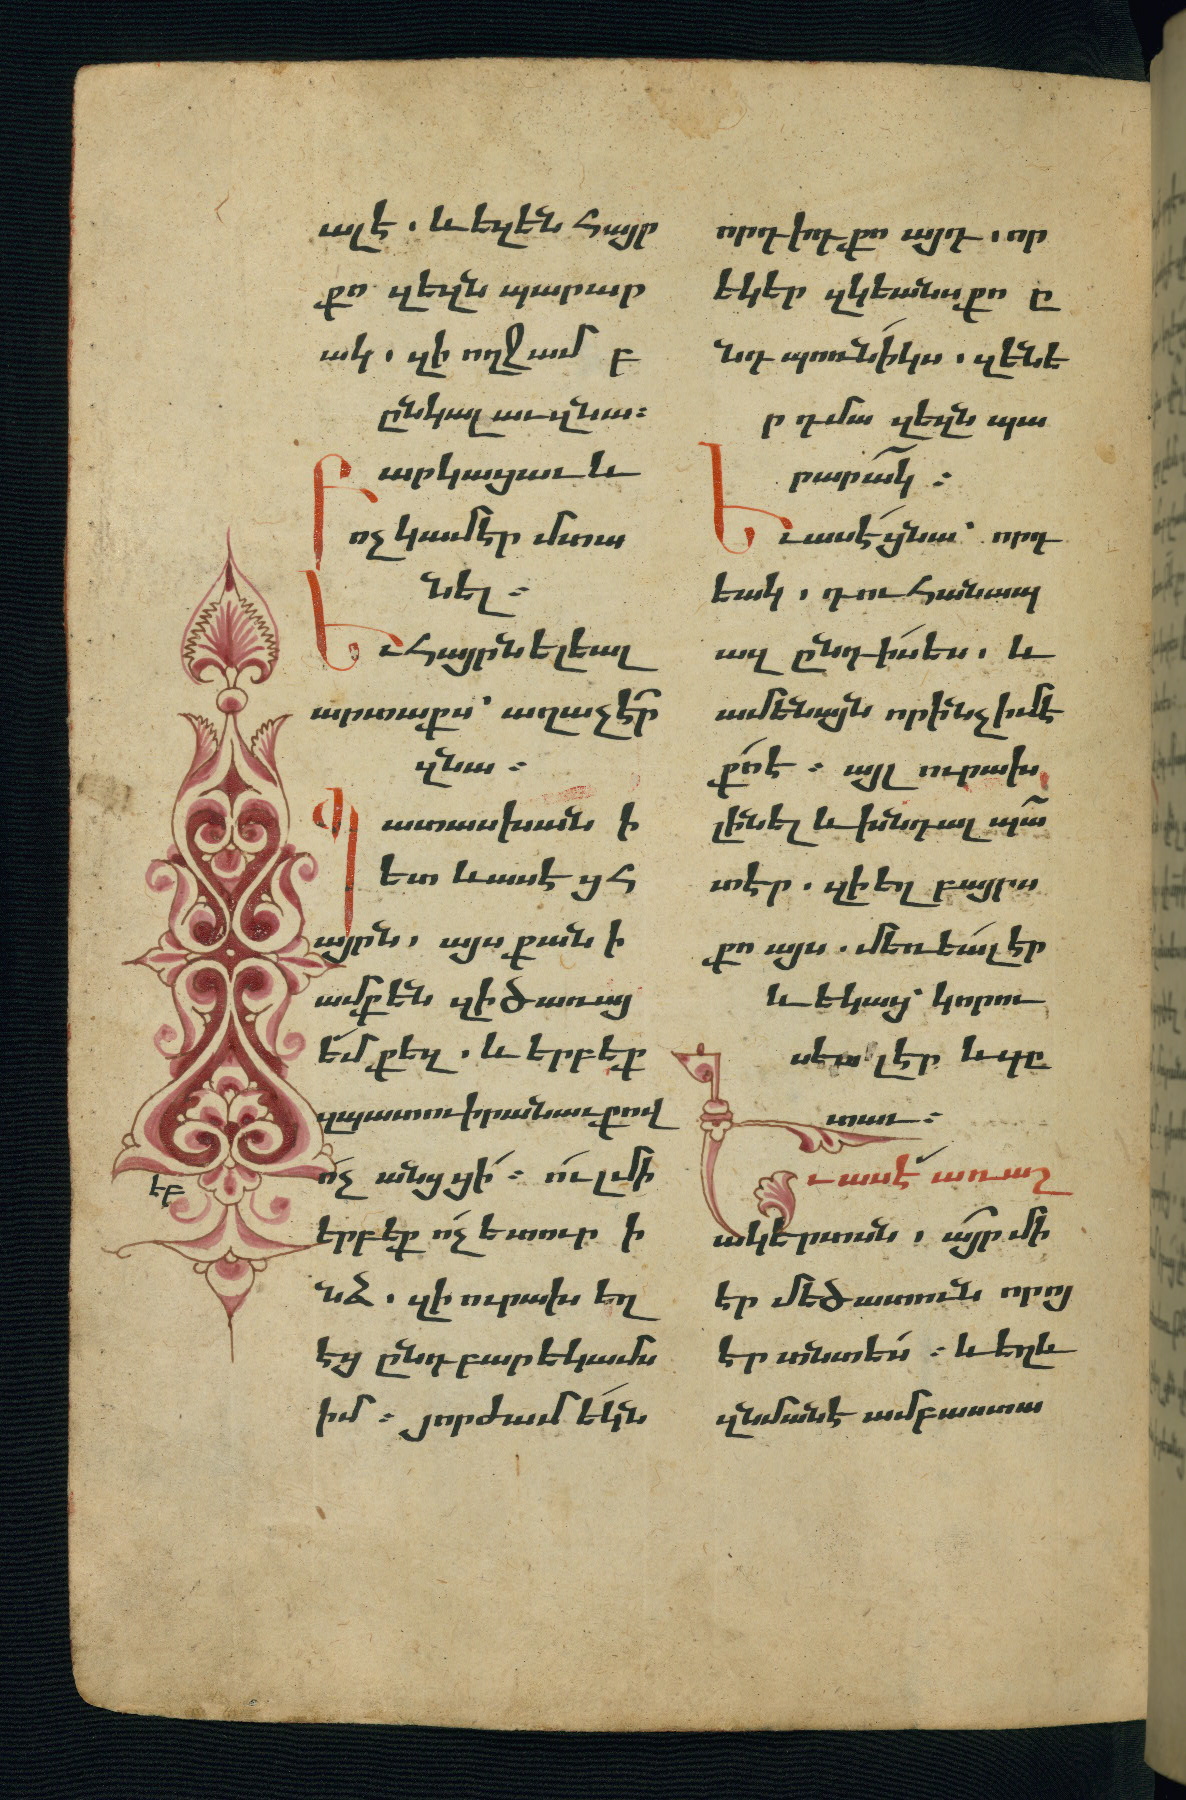 ալէ. և եզէն հայր
քո զեզն պարար
ակ. զի ողջամ բ
ընկալաւ զնա։
Բարկացաւ և
ոչ կամէր մտա
նել։
Եւ հայրն ելեալ
արտաքս՝ աղաչէր
զնա։
Պատասխանի
ետ և ասէ ցհ
այրն, այս քան ի
ամք են զի ծառայ
եմ քեզ. և երբեք
զպատուիրանաւ քով
ոչ անցցի։ ուլ մի
երբեք ոչ ետուր ի
նձ. զի ուրախ եղ
էց ընդ բարեկամս
իմ։ յորժամ եկն
էբ
որդիդ քո այդ. որ
եկեր զկեանս քո ը
նդ պոռնիկս. զենե
ր դմա զեզն պա
րարակ։
Եւ ասէ ցնա՝ որդ
եակ, դու հանապ
ազ ընդ իս ես. և
ամենայն որ ինչ իմ է
քո է։ այլ ուրախ
լինել և խնդալ պա
տէր. զի եղբայրս
քո այս. մեռեալ էր
և եկաց՝ կորու
սեալ էր և գը
տաւ։
Եւ ասէ առ աշ
ակերտսն, այր մի
էր մեծատուն որոյ
էր տնտես։ և եղև
զնմանէ ամբաստա